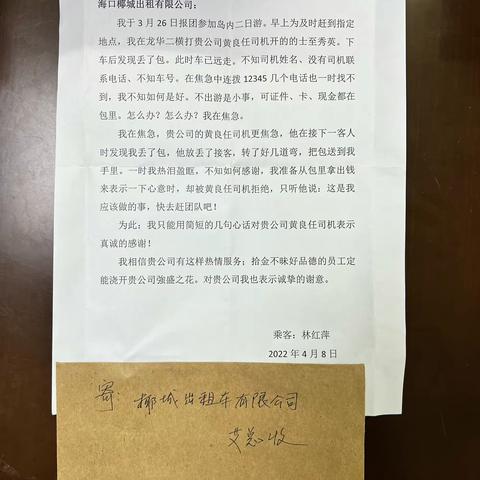 海口椰城出租有限公司:
我于3月26日报团参加岛内二日游。早上为及时赶到指定
地点，我在龙华二横打贵公司黄良任司机开的的士至秀英。下
车后发现丢了包。此时车已远走。不知司机姓名、没有司机联
系电话、不知车号。在焦急中连拨12345几个电话也一时找不
到，我不知如何是好。不出游是小事，可证件、卡、现金都在
包里。怎么办？怎么办？我在焦急。
我在焦急，贵公司的黄良任司机更焦急，他在接下一客人
时发现我丢了包，他放丢了接客，转了好几道弯，把包送到我
手里。一时我热泪盈眶，不知如何感谢，我准备从包里拿出钱
来表示一下心意时，却被黄良任司机拒绝，只听他说：这是我
应该做的事，快去赶团队吧！
为此：我只能用简短的几句心话对贵公司黄良任司机表示
真诚的感谢！
我相信贵公司有这样热情服务；拾金不昧好品德的员工定
能浇开贵公司強盛之花。对贵公司我也表示诚挚的谢意。
乘客：林红萍
2022年4月8日
寄：椰城出租车有限公司
艾总收